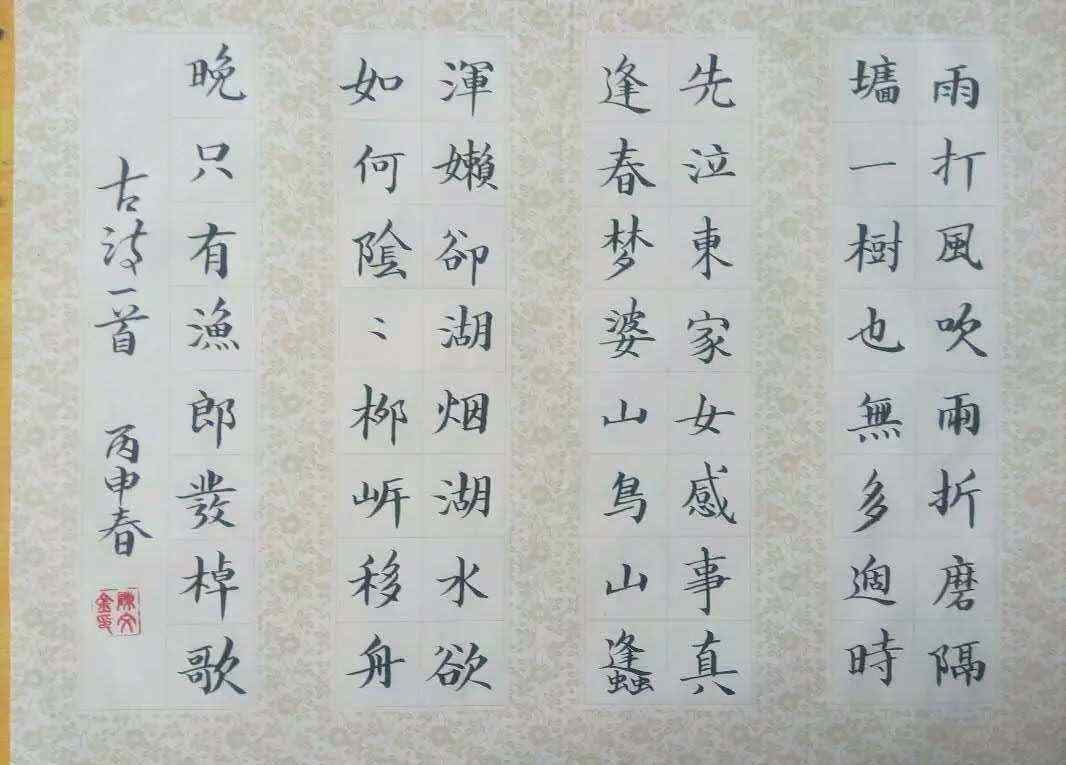 雨打風吹兩折磨隔
墻一樹也無多過時
先泣東家女感事真
逢春梦婆山鳥山蠭
渾嬾卻湖烟湖水欲
如何陰〻柳岍移舟
晚只有漁郎發棹歌
古詩一首 丙申春